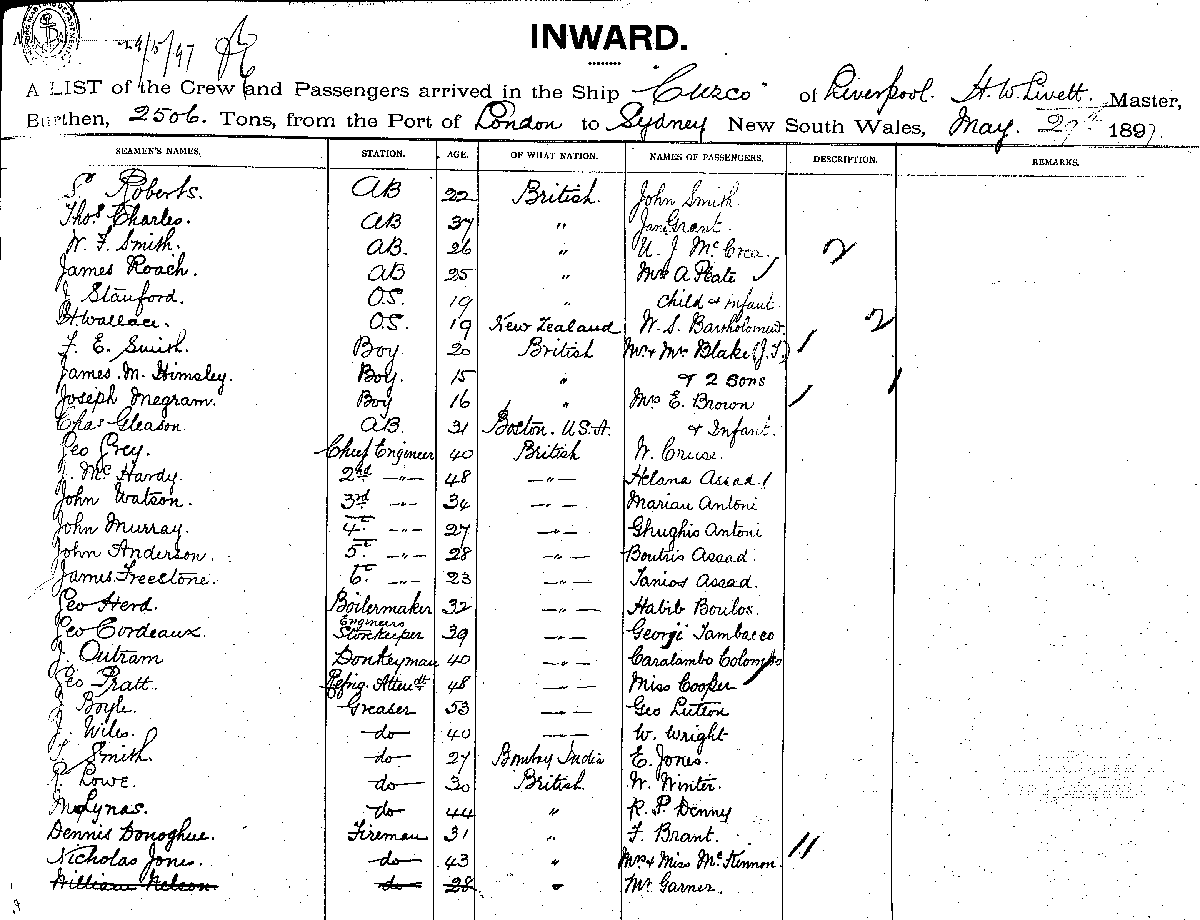 29/5/97
INWARD.
A LIST of the Crew and Passengers arrived in the Ship "Cuzco" of Liverpool. H. W. Livett. Master,
Burthen, 2506. Tons, from the Port of London to Sydney New South Wales, May. 29th 1897.
SEAMEN'S NAMES. STATION. AGE. OF WHAT NATION. NAMES OF PASSENGERS. DESCRIPTION. REMARKS.
Roberts. AB 22 British. John Smith.
Thos Charles. AB 37 " Jane Grant.
W. F. Smith. AB. 26 " McCrea. 2
James Roach. AB 25 " A Peate
J. Stanford. O.S. 19 " Child & infant.
H. Wallace. O.S. 19 New Zealand W. S. Bartholomew. 2
F. E. Smith. Boy. 20 British Mr & Mrs Blake (J. F.)
James. M. Himsley. Boy. 15 " & 2 Sons
Joseph Megram. Boy 16 " Mrs E. Brown
Chas Gleason. AB. 31 Boston. U.S.A. & Infant.
Geo Grey. Chief Engineer 40 British W. Cruise.
J. McHardy. 2nd -"- 48 -"- Helana Assad.
John Watson. 3rd -"- 34 -"- Marian Antoni
John Murray. 4th -"- 27 -"- Ghughis Antoni
John Anderson. 5th -"- 28 -"- Boutris Assad.
James Freestone. 6th -"- 23 -"- Tanios Assad.
Geo Herd. Boilermaker 32 -"- Habib Boulos.
Geo Cordeaux. Engineers Storekeeper 39 -"- Georgi Tambacco
J. Outram Donkeyman 40 -"- Caralambo Colombo
Geo Pratt. Refrig. Attendt 48 -"- Miss Cooper
J. Boyle. Greaser 53 -"- Geo Lutton
J. Wiles. do 40 -"- W. Wright
Smith. do 27 Bombay India E. Jones.
R. Lowe. do 30 British. W. Winter.
M. Lynas. do 44 " R. P. Denny
Dennis Donoghue. Fireman 31 " F. Brant.
Nicholas Jones. do 43 " Mrs & Miss McKinnon. 11
William Nelson do 28 " Mr Garner.